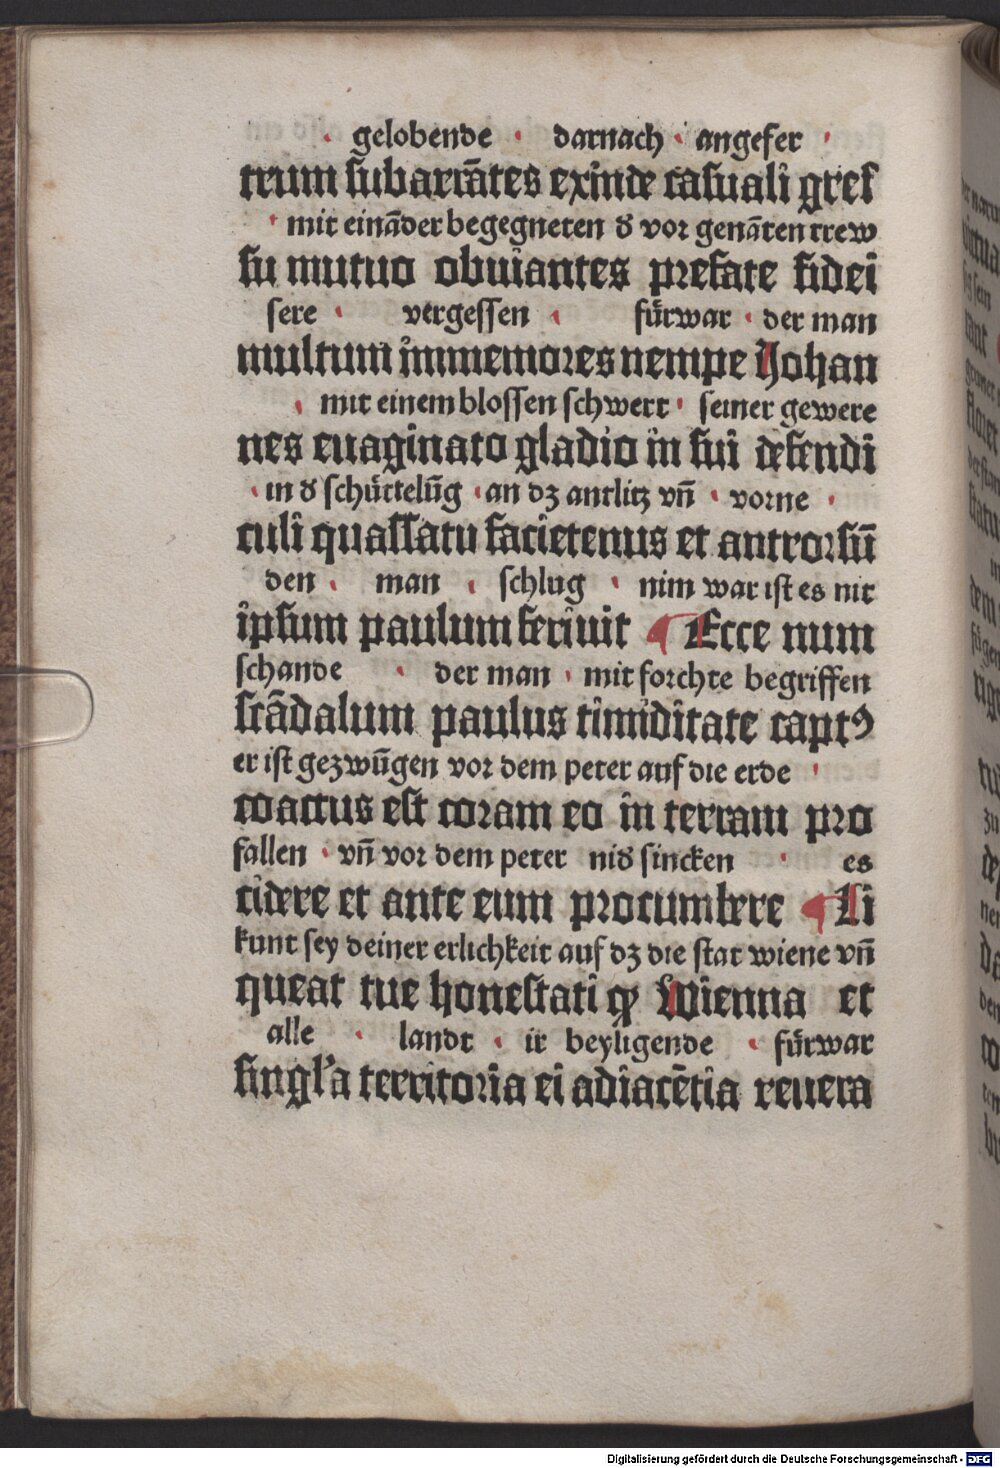 gelobende · darnach · angefer
trum subarrãtes exinde casuali gres
mit einãder begegneten d᷎ vor genãten trew
su mutuo obuiantes prefate fidei
sere · vergessen · fürwar · der man
multum immemores nempe Johan
mit einem blossen schwert · seiner gewere
nes euaginato gladio in sui defendi
in d᷎ schüttelũg · an dz antlitz vñ · vorne
culi quassatu facietenus et antrorsũ
den · man · schlug · nim war ist es nit
ipsum paulum feriuit ¶ Ecce num
schande · der man · mit forchte begriffen
scãdalum paulus timiditate captꝰ
er ist gezwũgen vor dem peter auf die erde
coactus est coram eo in terram pro
fallen · vñ vor dem peter nid᷎ sincken · es
cidere et ante eum procumbere ¶ Li
kunt sey deiner erlichkeit auf dz die stat wiene vñ
queat tue honestati ꝙ Wienna et
alle · landt · ir beyligende · fürwar
singl'a territoria ei adiacẽtia reuera
Digitalisierung gefördert durch die Deutsche Forschungsgemeinschaft - DFG